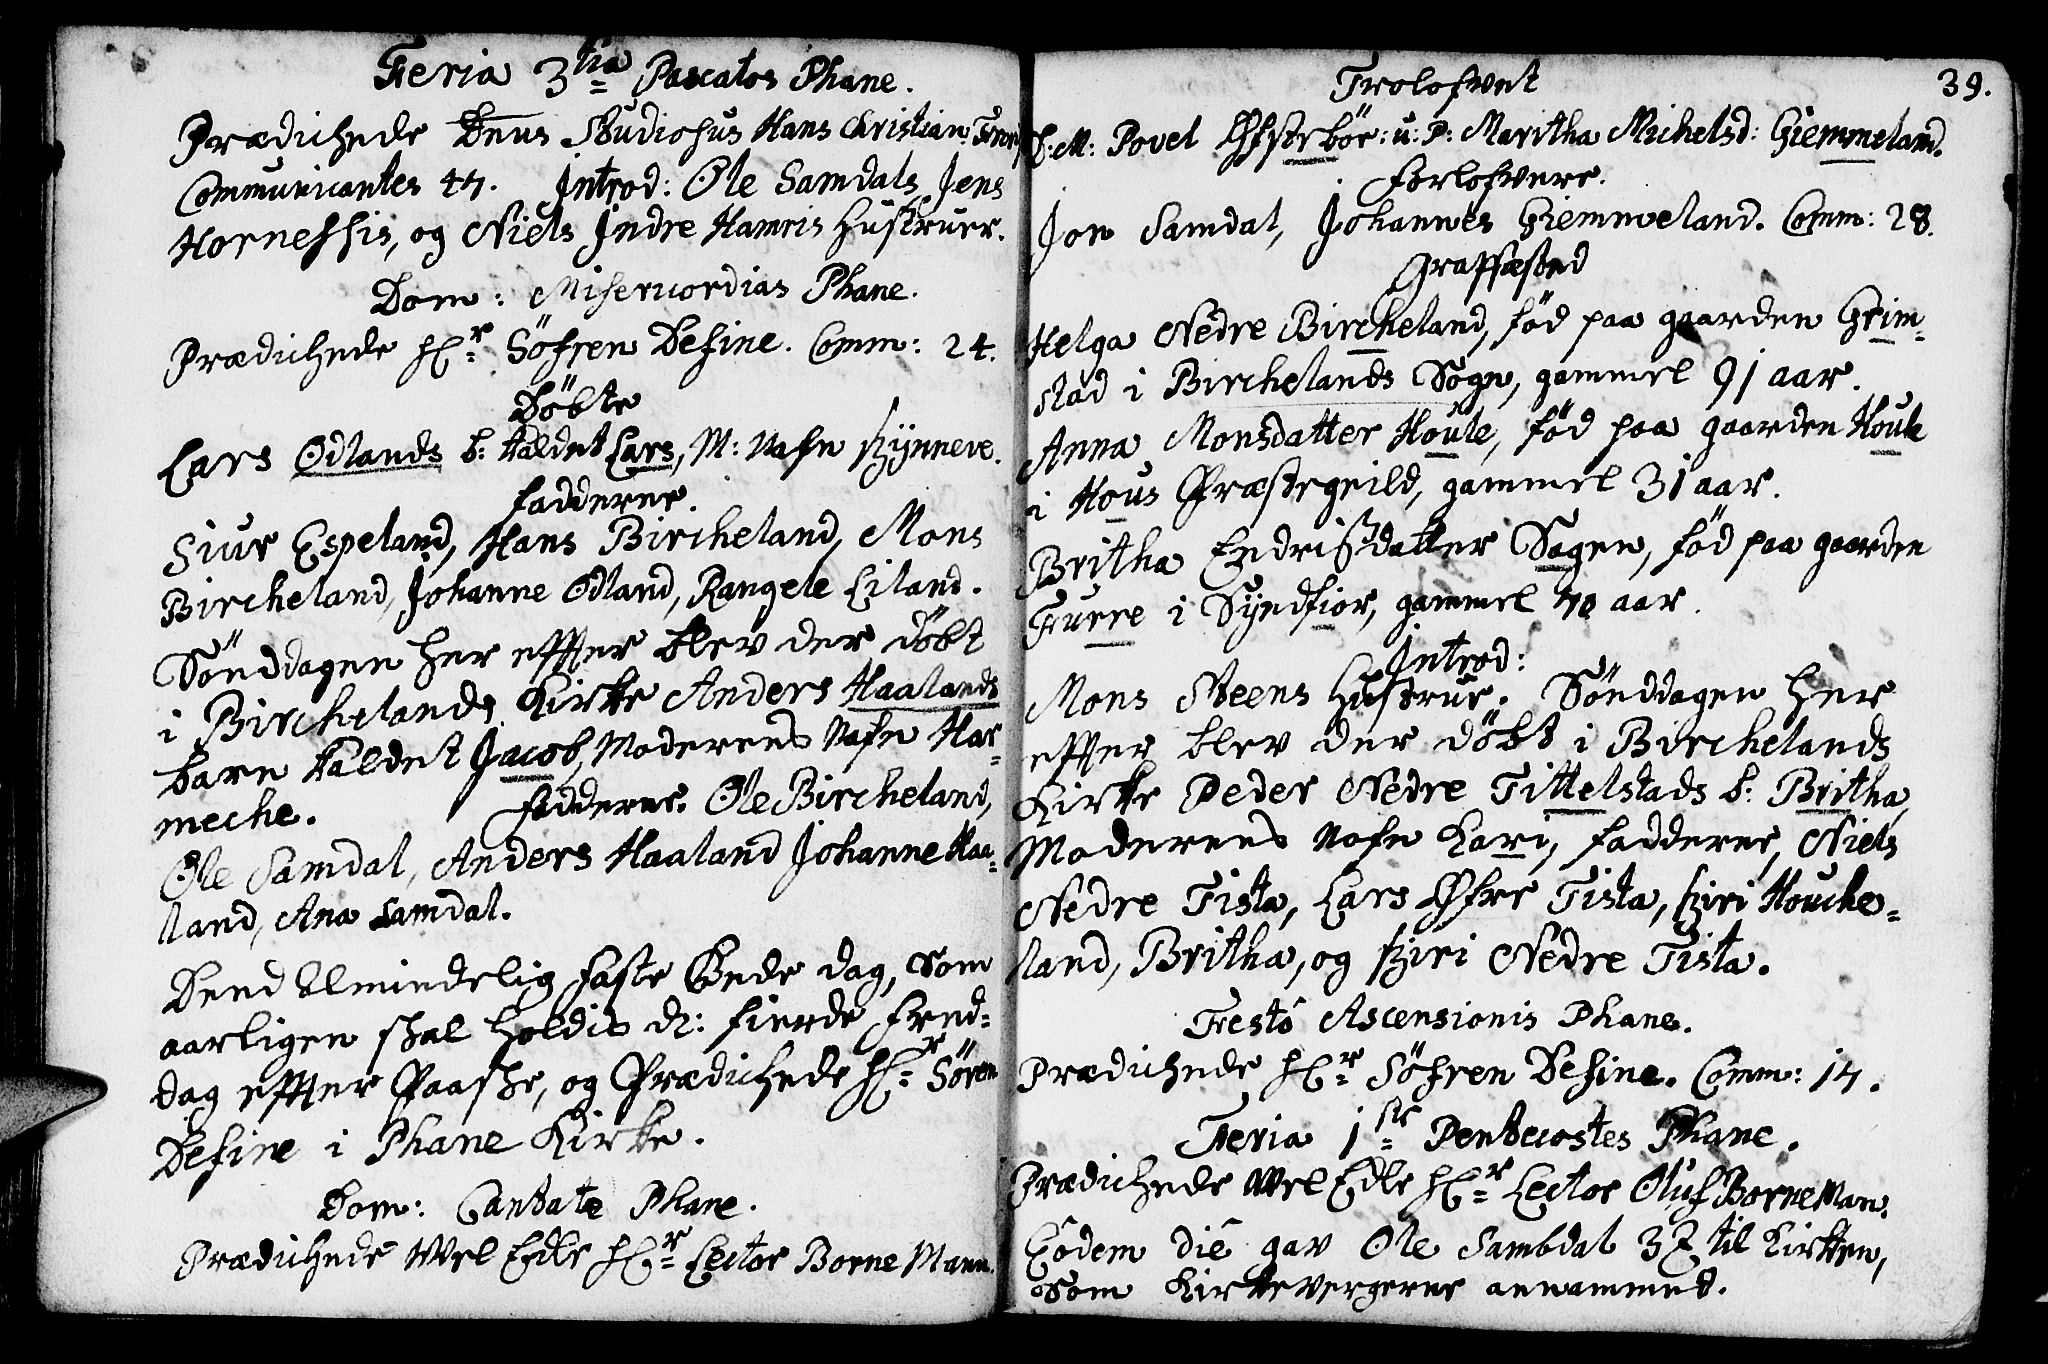 Feria 3tia Pascatos Phane.
Prædichede Dnus Studiosus Hans Christian
Communicantes 44. Introd: Ole Samdals, Jens
Hornessis, og Niels Indre Hamris Hustruer.
Dom: Misericordias Phane.
Prædichede Hr Söfren Define. Comm: 24.
Döbte
Lars Ødlands b: kaldet Lars, M: Nafn Synneve.
Fadderne.
Siur Espeland, Hans Bircheland, Mons
Bircheland, Johanne Ødland, Rangele Liland.
Sönddagen her effter blev der döbt
i Birchelands Kirke Anders Haalands
barn kaldet Jacob, Moderens Nafn Har-
meche. Fadderne. Ole Bircheland,
Ole Samdal, Anders Haaland Johanne Haa-
land, Ana Samdal.
Dend Almindelig Faste Bede dag, som
aarligen skal holdis d: fierde Fred-
dag effter Paaske, og Prædichede Hr Sören
Define i Phane Kirke.
Dom: Cantate Phane.
Prædichede Wel Edle Hr Lector Borne Mann.
39.
Trolofvet
S: M: Povel Øfsterböe: u: P: Maritha Michelsd: Giemmeland.
Forlofvere.
Jon Samdal, Johannes Giemmeland. Comm: 28.
Graffæsted
Helga Nedre Bircheland, fød paa gaarden Grim-
stad i Birchelands Sogn, gammel 91 aar.
Anna Monsdatter Houle, föd paa gaarden Houle
i Hous Præstegeild, gammel 31 aar.
Britha Endrißdatter Sagen, föd paa gaarden
Furre i Syndfior, gammel 70 aar.
Introd:
Mons Steens Hustrue. Sönddagen her
effter blev der döbt i Birchelands
Kirke Peder Nedre Tittelstads b: Britha,
Moderens Nafn Kari, Fadderne, Niels
Nedre Tista, Lars Øfre Tista, Siri Houche-
land, Britha, og Siri Nedre Tista.
Festo Ascensionis Phane.
Prædichede Hr Söfren Define. Comm: 14.
Feria 1ste Pentecostes Phane.
Prædichede Wel Edle Hr Lector Oluf Borne Man.
Eodem die gav Ole Sambdal 3 til Kirken,
som Kirkevergerne annammed.